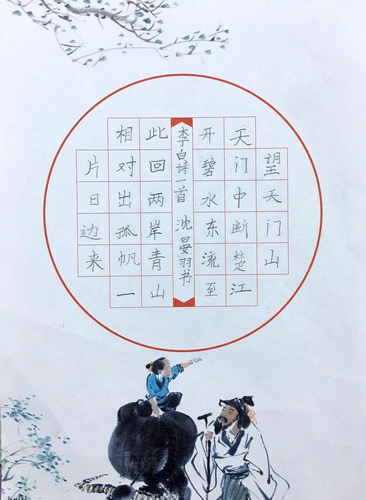 望天门山
天门中断楚江
开碧水东流至
李白诗一首 沈晏羽书
此回两岸青山
相对出孤帆一
片日边来